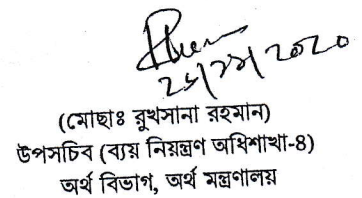 ২৬/১১/২০২০
(মোছাঃ রুখসানা রহমান)
উপসচিব (ব্যয় নিয়ন্ত্রণ অধিশাখা-৪)
অর্থ বিভাগ, অর্থ মন্ত্রণালয়